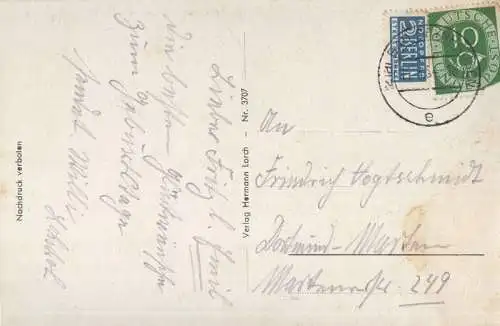 Nachdruck verboten
Lieber Fritz l. Emil
Die besten Glückwünsche
zum Geburtstage
sendet Willi
Verlag Hermann Lorch - Nr. 3707
NOTOPFER
2 BERLIN
STEUERMARKE
DEUTSCHE POST
10
e
An
Friedrich Vogtschmidt
Dortmund-Marten
Martenerstr. 249